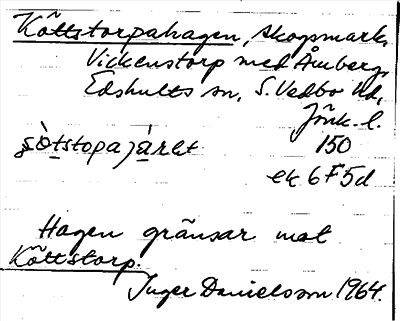 Köttstorpahagen, skogsmark,
Vickenstorp med Åmberg,
Edshults sn, S. Vedbo hd,
Jönk. l.
150
ek 6F5d
Hagen gränsar mot
Köttstorp.
Inger Danielsson 1964.